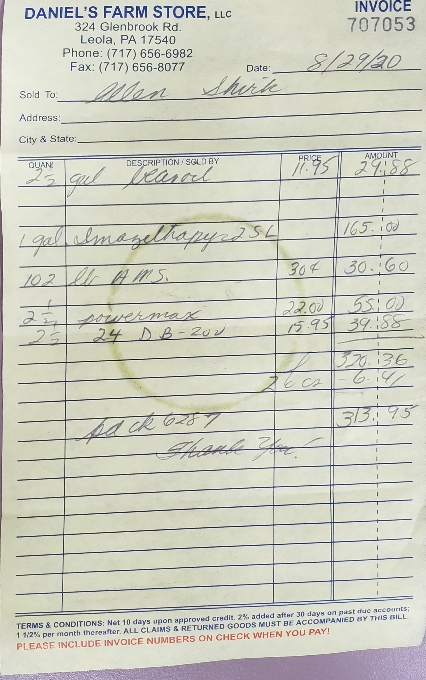 DANIEL'S FARM STORE, LLC
324 Glenbrook Rd.
Leola, PA 17540
Phone: (717) 656-6982
Fax: (717) 656-8077
INVOICE
707053
Date: 8/29/20
Sold To: Allen Shirk
Address:
City & State:
QUAN. DESCRIPTION / SOLD BY PRICE AMOUNT
2 1/2 gal 11.95 29.88
1 gal Imazethapyr 2 SL 165.00
102 lb AMS. 30¢ 30.60
2 1/2 powermax 22.00 55.00
2 1/2 24 D B-200 15.95 39.88
320.36
2% - 6.41
313.95
pd ck 6287
Thank You!
TERMS & CONDITIONS: Net 10 days upon approved credit. 2% added after 30 days on past due accounts;
1 1/2% per month thereafter. ALL CLAIMS & RETURNED GOODS MUST BE ACCOMPANIED BY THIS BILL.
PLEASE INCLUDE INVOICE NUMBERS ON CHECK WHEN YOU PAY!